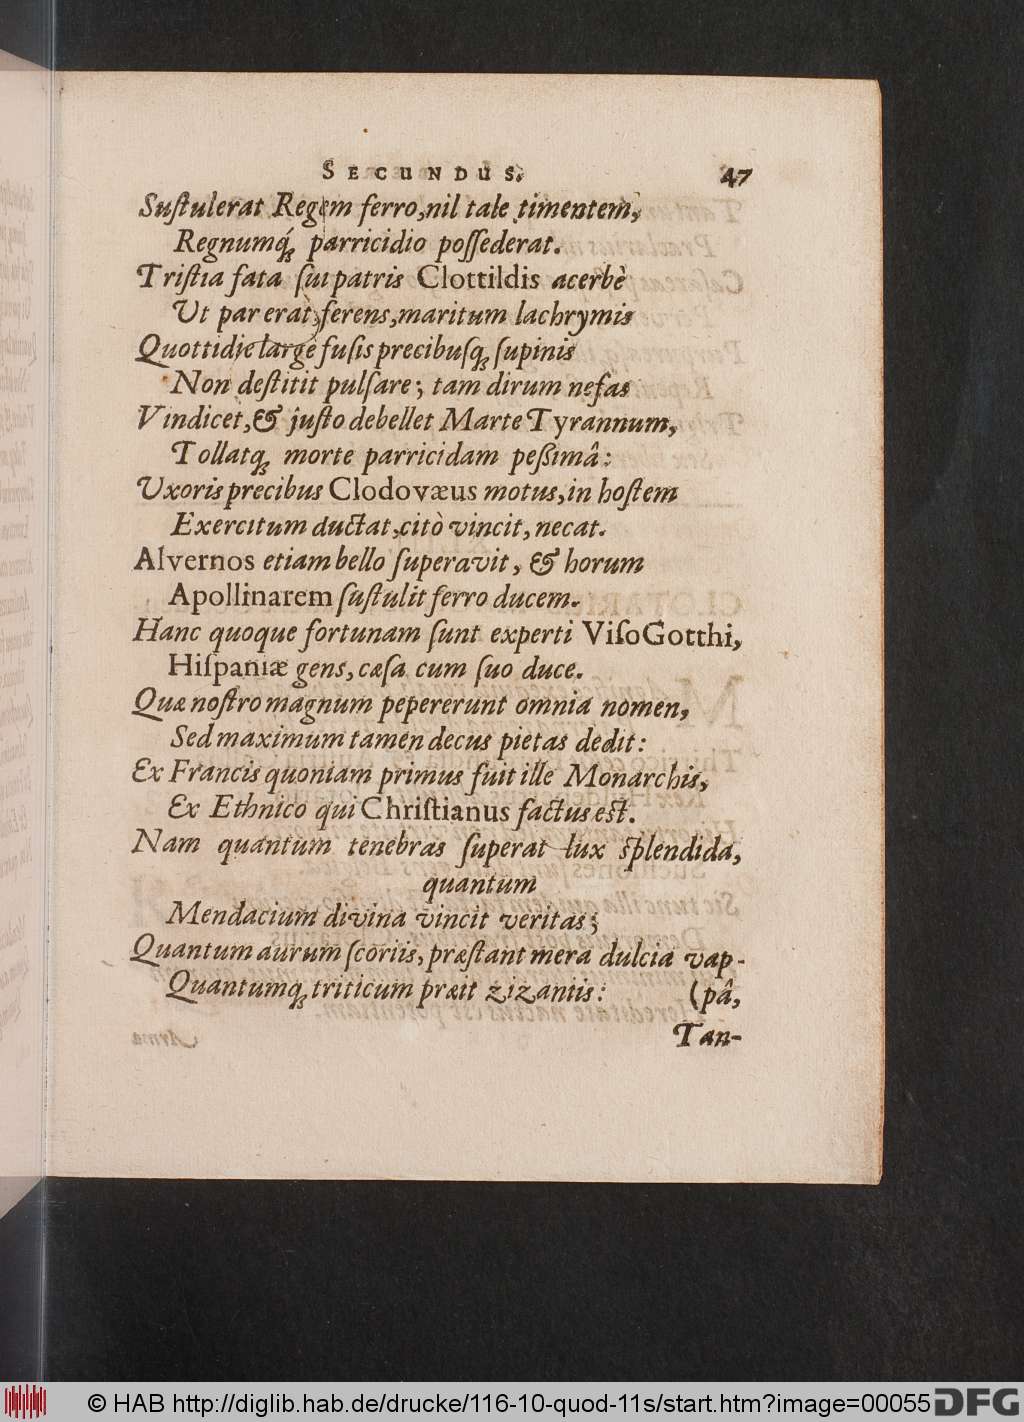 SECUNDUS. 47
Suſtulerat Regem ferro, nil tale timentem,
Regnumq́; parricidio poſſederat.
Triſtia fata ſui patris Clottildis acerbè
Ut par erat, ferens, maritum lachrymis
Quottidie largè fuſis precibuſq; ſupinis
Non deſtitit pulſare; tam dirum nefas
Vindicet, & juſto debellet Marte Tyrannum,
Tollatq; morte parricidam peßimâ:
Uxoris precibus Clodovæus motus, in hoſtem
Exercitum ductat, citò vincit, necat.
Alvernos etiam bello ſuperavit, & horum
Apollinarem ſuſtulit ferro ducem.
Hanc quoque fortunam ſunt experti Viſo Gotthi,
Hiſpaniæ gens, cæſa cum ſuo duce.
Quæ noſtro magnum pepererunt omnia nomen,
Sed maximum tamen decus pietas dedit:
Ex Francis quoniam primus fuit ille Monarchis,
Ex Ethnico qui Chriſtianus factus eſt.
Nam quantum tenebras ſuperat lux ſplendida,
quantum
Mendacium divina vincit veritas;
Quantum aurum ſcoriis, præſtant mera dulcia vap-
Quantumq; triticum præit zizaniis: (pâ,
Tan-
© HAB http://diglib.hab.de/drucke/116-10-quod-11s/start.htm?image=00055 DFG